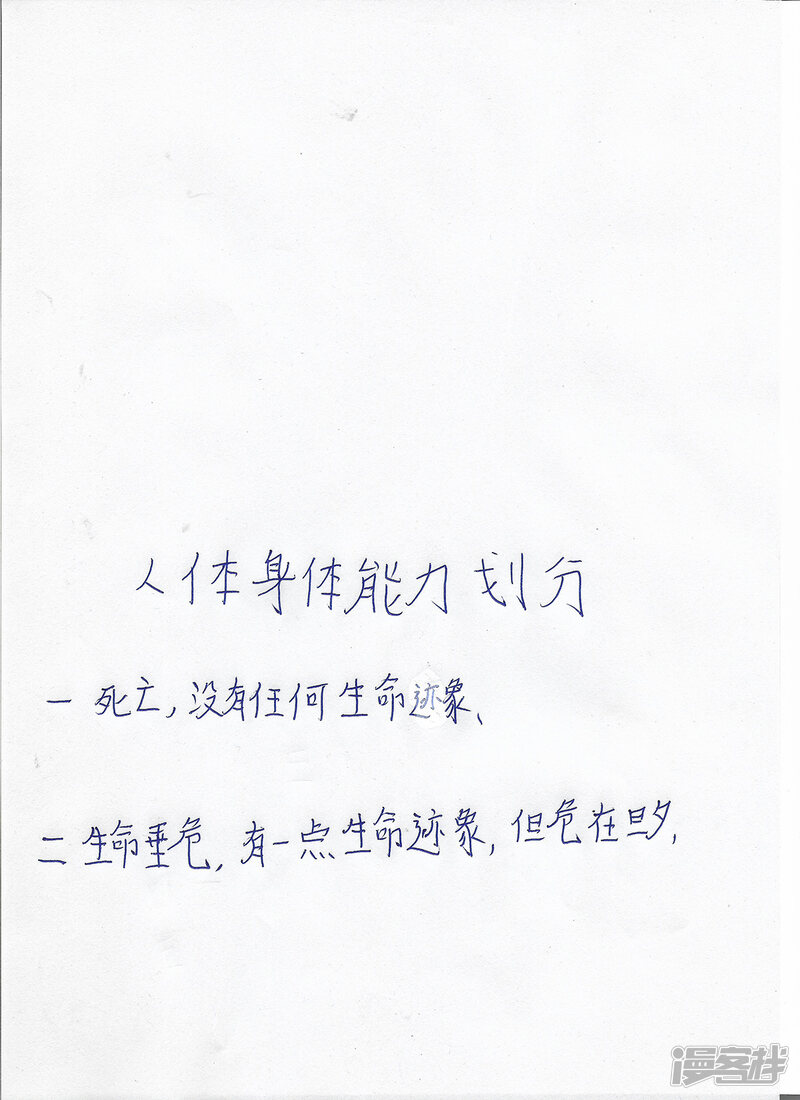 人体身体能力划分
一 死亡，没有任何生命迹象、
二 生命垂危，有一点生命迹象，但危在旦夕，
漫客栈